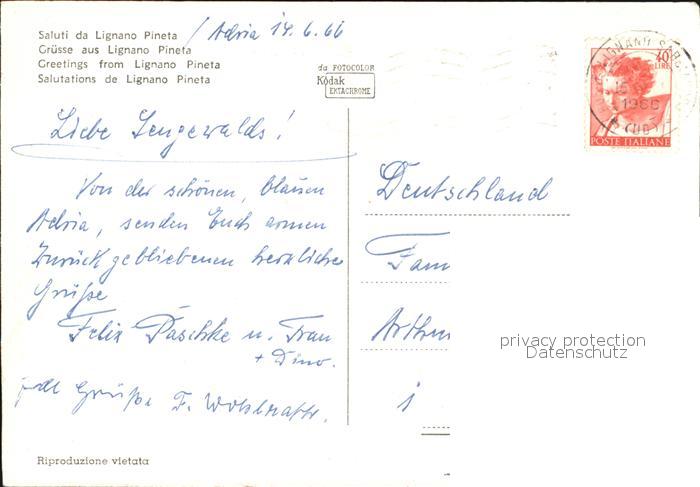 Saluti da Lignano Pineta
Grüsse aus Lignano Pineta
Greetings from Lignano Pineta
Salutations de Lignano Pineta
/ Adria 14.6.66
da FOTOCOLOR
Kodak
EKTACHROME
40
LIRE
1966
(UD)
POSTE ITALIANE
Liebe Lengewalds!
Von der schönen, blauen
Adria, senden Euch armen
Zurückgebliebenen herzliche
Grüße
Felix Paschke u. Frau
+ Dino.
Grüße F.
Deutschland
Fam
Arthu
i
privacy protection
Datenschutz
Riproduzione vietata